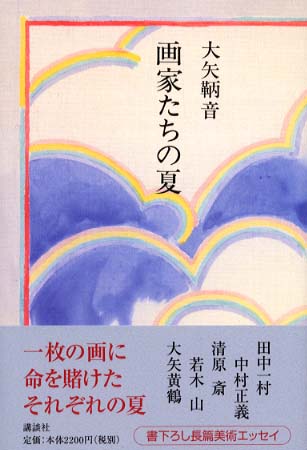 大矢鞆音
画家たちの夏
一枚の画に
命を賭けた
それぞれの夏
講談社
定価：本体2200円（税別）
田中一村
中村正義
清原 斎
若木 山
大矢黄鶴
書下ろし長篇美術エッセイ